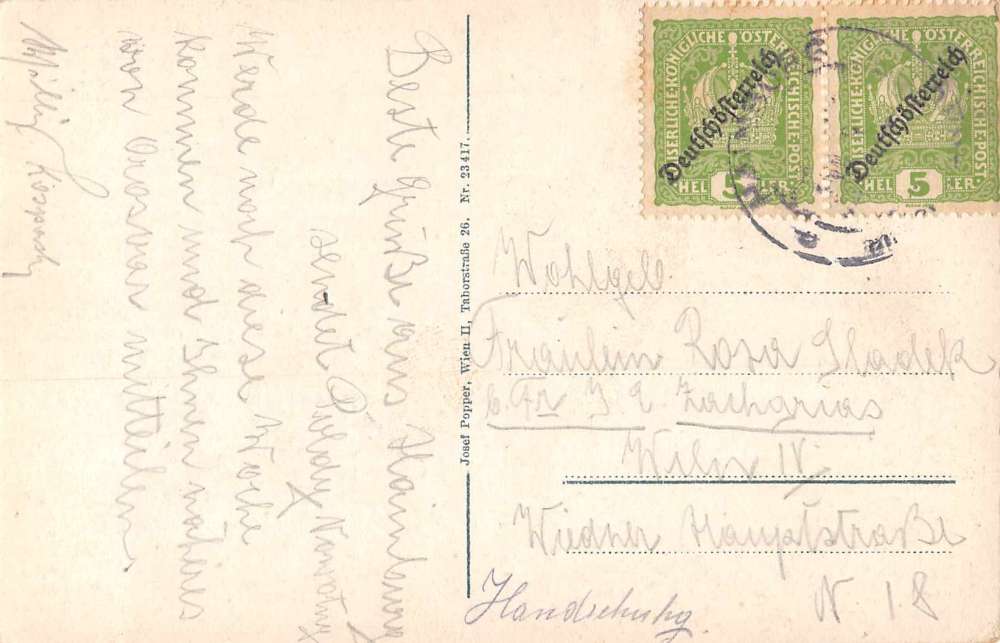 Beste Grüße aus Hainburg
sendet
Werde noch diese Woche
kommen und Ihnen näheres
von Oroszvar mitteilen
Josef Popper, Wien II, Taborstraße 26. Nr. 23417.
KAISERLICHE KÖNIGLICHE ÖSTERREICHISCHE POST
Deutschösterreich
HELLER 5
KAISERLICHE KÖNIGLICHE ÖSTERREICHISCHE POST
Deutschösterreich
HELLER 5
Wohlgeb
Fräulein Rosa Sladek
b. Fr Zacharias
Wien IV
Wiedner Hauptstraße
N 18